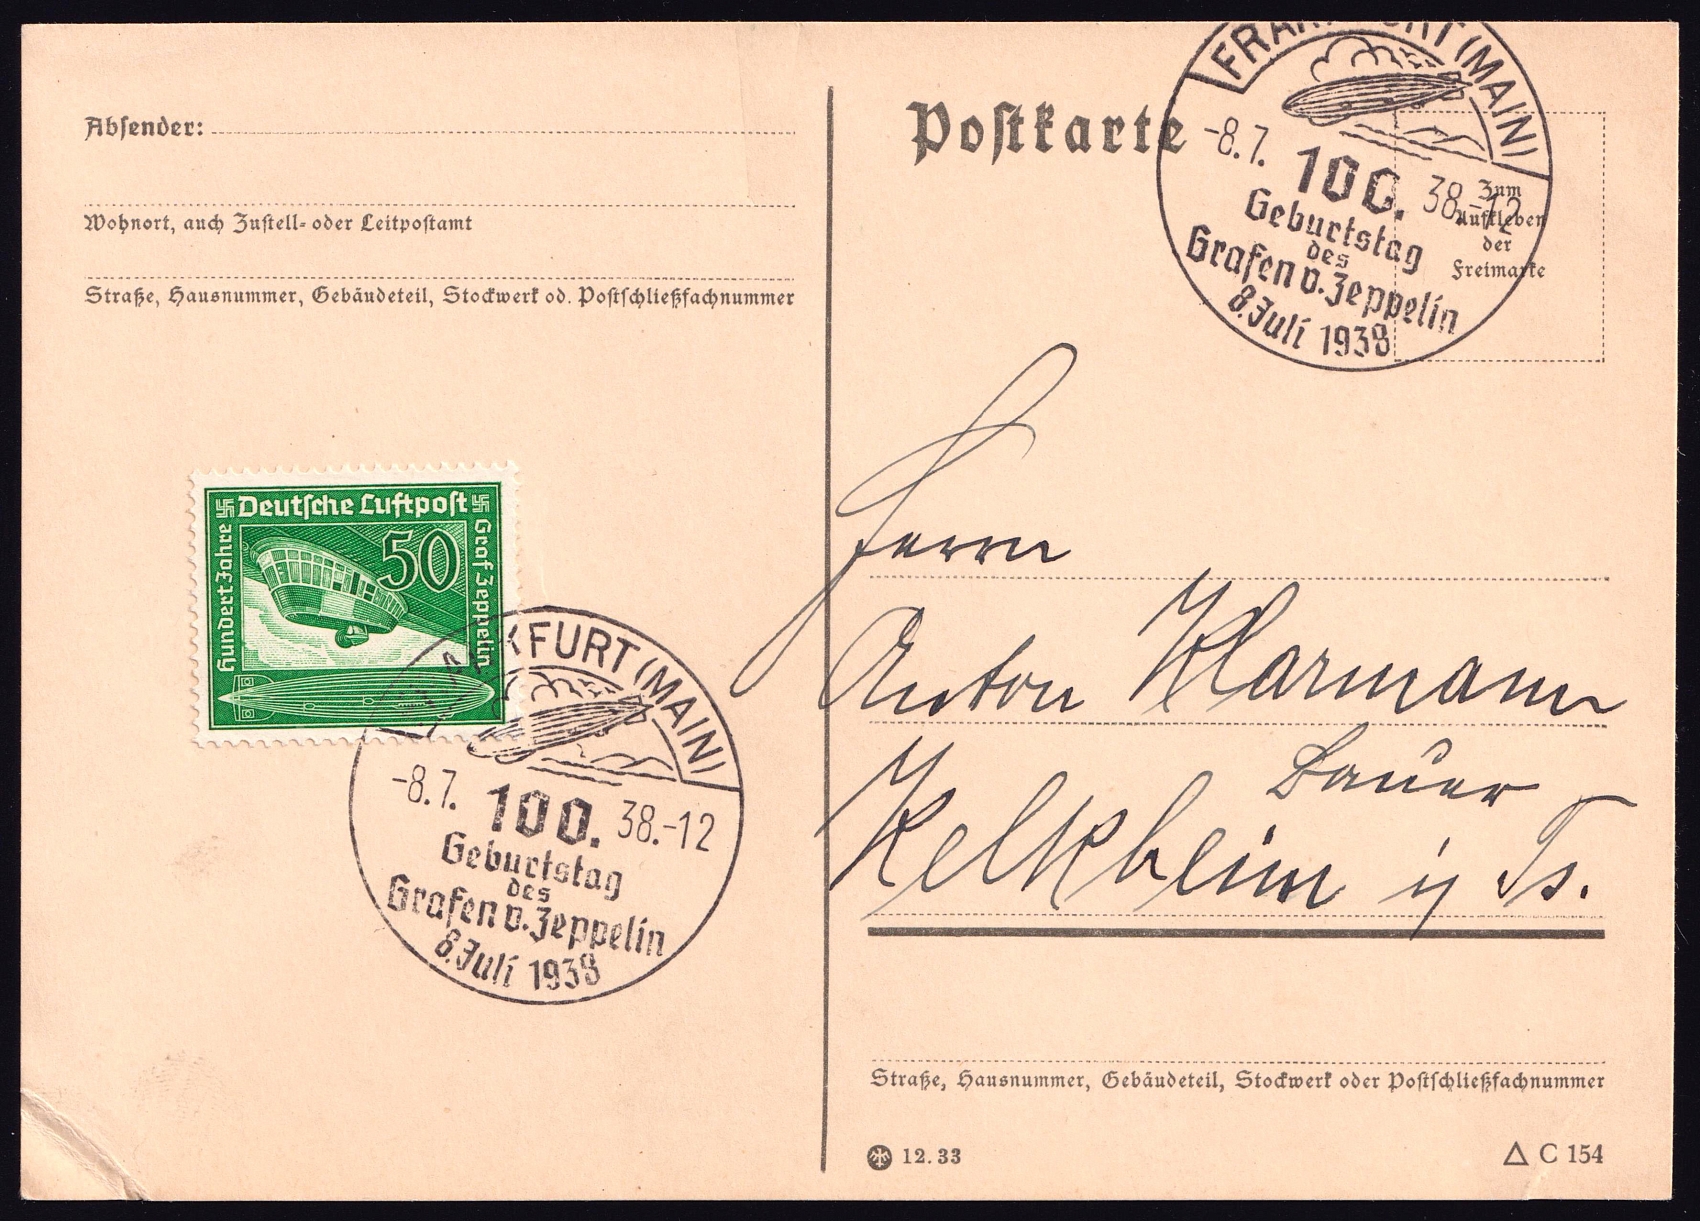 Absender:
Wohnort, auch Zustell- oder Leitpostamt
Straße, Hausnummer, Gebäudeteil, Stockwerk od. Postschließfachnummer
Deutsche Luftpost
Hundert Jahre
Graf Zeppelin
50
FRANKFURT (MAIN)
-8.7. 38.-12
100.
Geburtstag
des
Grafen v. Zeppelin
8. Juli 1938
Postkarte
FRANKFURT (MAIN)
-8.7. 38.-12
100.
Geburtstag
des
Grafen v. Zeppelin
8. Juli 1938
Zum
Aufkleben
der
Freimarke
Herrn
Anton Klarmann
Bauer
Kelkheim i/Ts.
Straße, Hausnummer, Gebäudeteil, Stockwerk oder Postschließfachnummer
12. 33
△ C 154